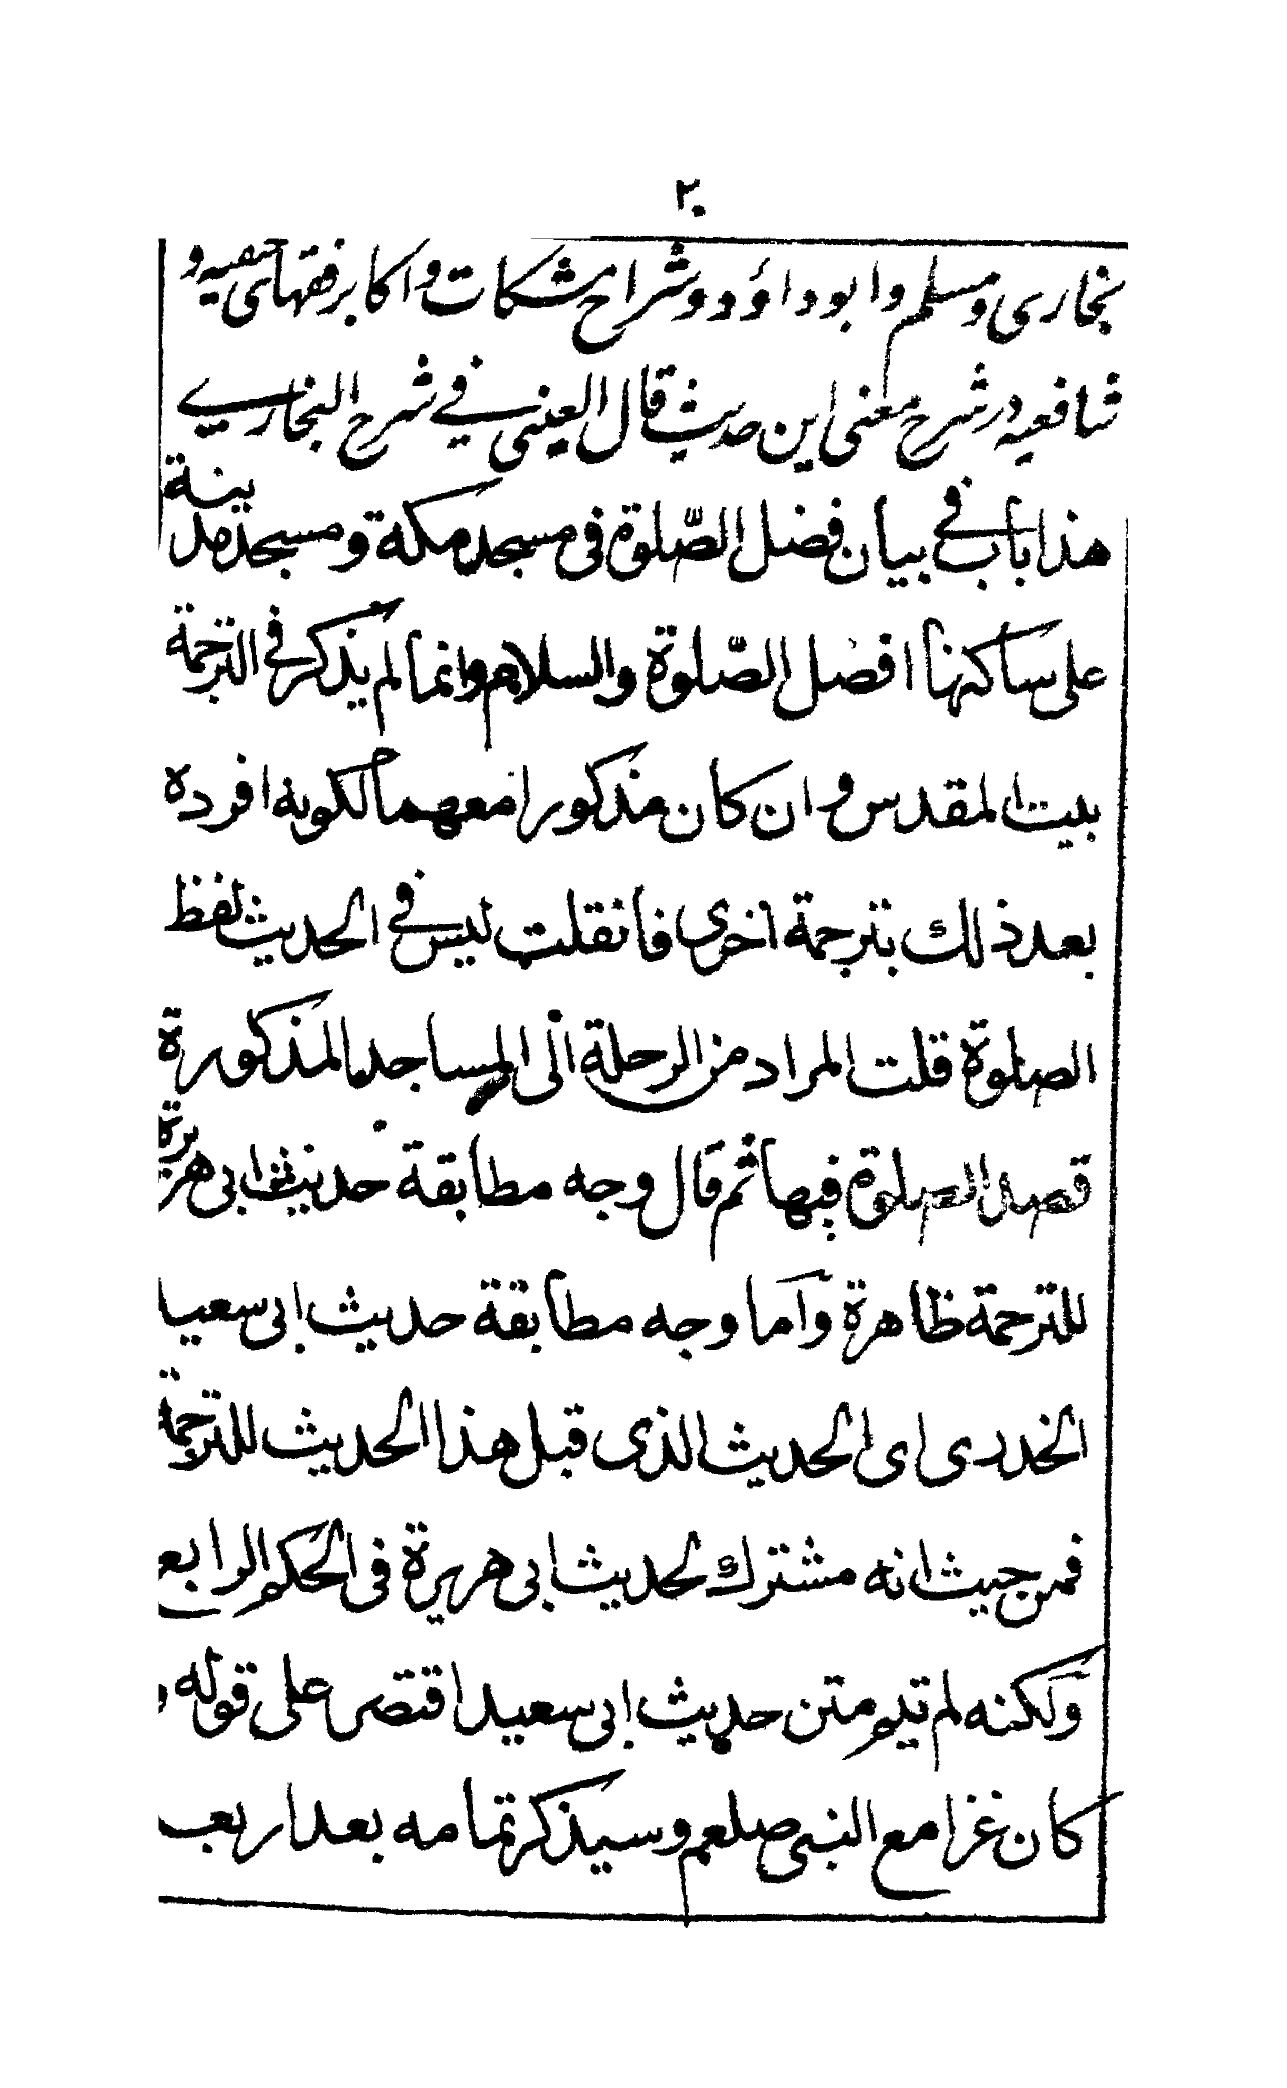 ٢٠
بخاری و مسلم و ابو داؤد و شراح مشکات و اکابر فقهای حنفیه و
شافعیه در شرح معنی این حدیث قال العینی فی شرح البخاری
هذا باب فی بیان فضل الصّلوة فی مسجد مکة و مسجد مدینة
علی ساکنها افضل الصّلوة والسلام وانما لم یذکر فی الترجمة
بیت المقدس و ان کان مذکورا معهما لکونه افرده
بعد ذلك بترجمة اخری فان قلت لیس فی الحدیث لفظ
الصلوة قلت المراد من الرحلة الی المساجد المذکورة
قصد الصلوة فیها ثم قال وجه مطابقة حدیث ابی هریرة
للترجمة ظاهرة وأما وجه مطابقة حدیث ابی سعید
الخدری ای الحدیث الذی قبل هذا الحدیث للترجمة
فمن حیث انه مشترك لحدیث ابی هریرة فی الحکم الرابع
ولکنه لم یتم متن حدیث ابی سعید اقتصر علی قوله و
کان غزا مع النبی صلعم وسیذکر تمامه بعد اربعـ